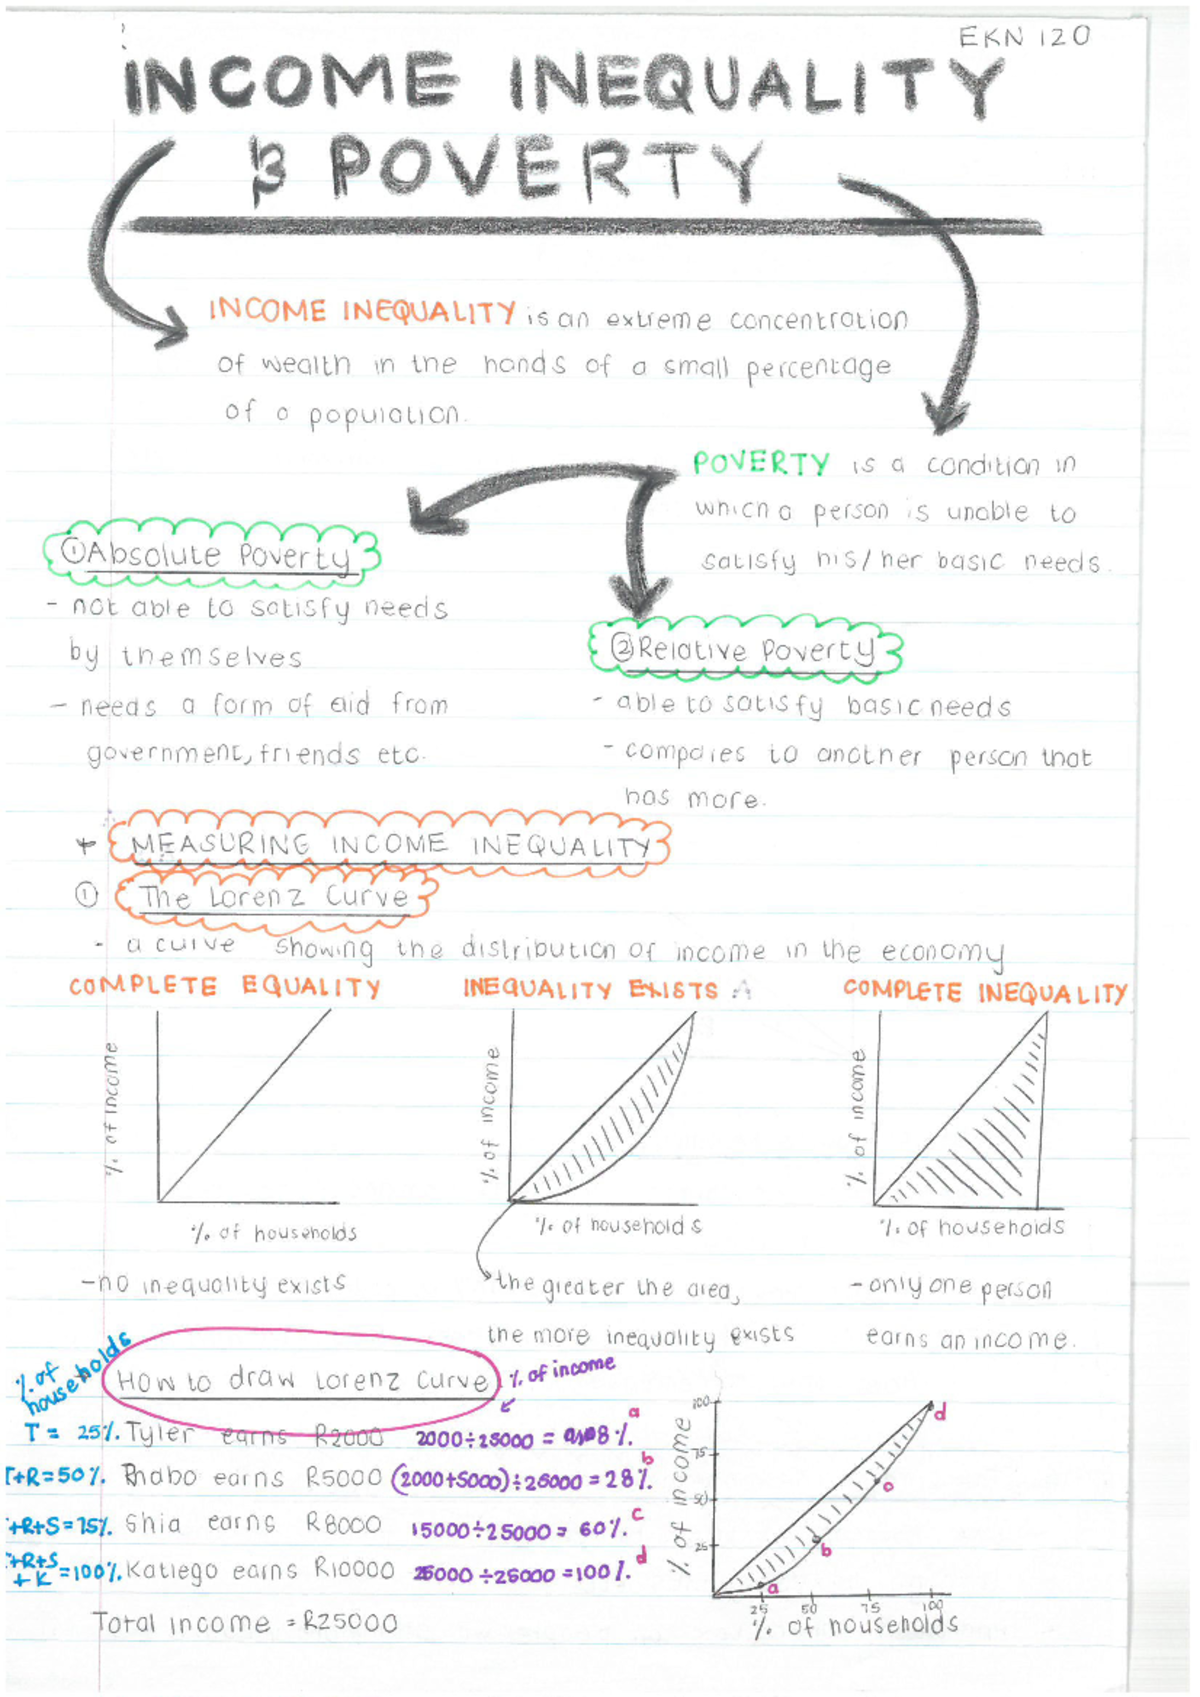 EKN 120
INCOME INEQUALITY
& POVERTY
INCOME INEQUALITY is an extreme concentration
of wealth in the hands of a small percentage
of a population.
POVERTY is a condition in
which a person is unable to
satisfy his/her basic needs.
① Absolute Poverty
- not able to satisfy needs
by themselves
- needs a form of aid from
government, friends etc.
② Relative Poverty
- able to satisfy basic needs
- compares to another person that
has more.
* MEASURING INCOME INEQUALITY
① The Lorenz Curve
- a curve showing the distribution of income in the economy
COMPLETE EQUALITY
% of income
% of households
- no inequality exists
INEQUALITY EXISTS
% of income
% of households
the greater the area,
the more inequality exists
COMPLETE INEQUALITY
% of income
% of households
- only one person
earns an income.
% of households
How to draw Lorenz Curve
% of income
T = 25% Tyler earns R2000 2000÷25000 = 8% a
T+R=50% Rhabo earns R5000 (2000+5000)÷25000 = 28% b
+R+S=75% Shia earns R8000 15000÷25000 = 60% c
+R+S
+K =100% Katlego earns R10000 25000÷25000 =100% d
Total income = R25000
% of income
100
75
50
25
a
b
c
d
25 50 75 100
% of households